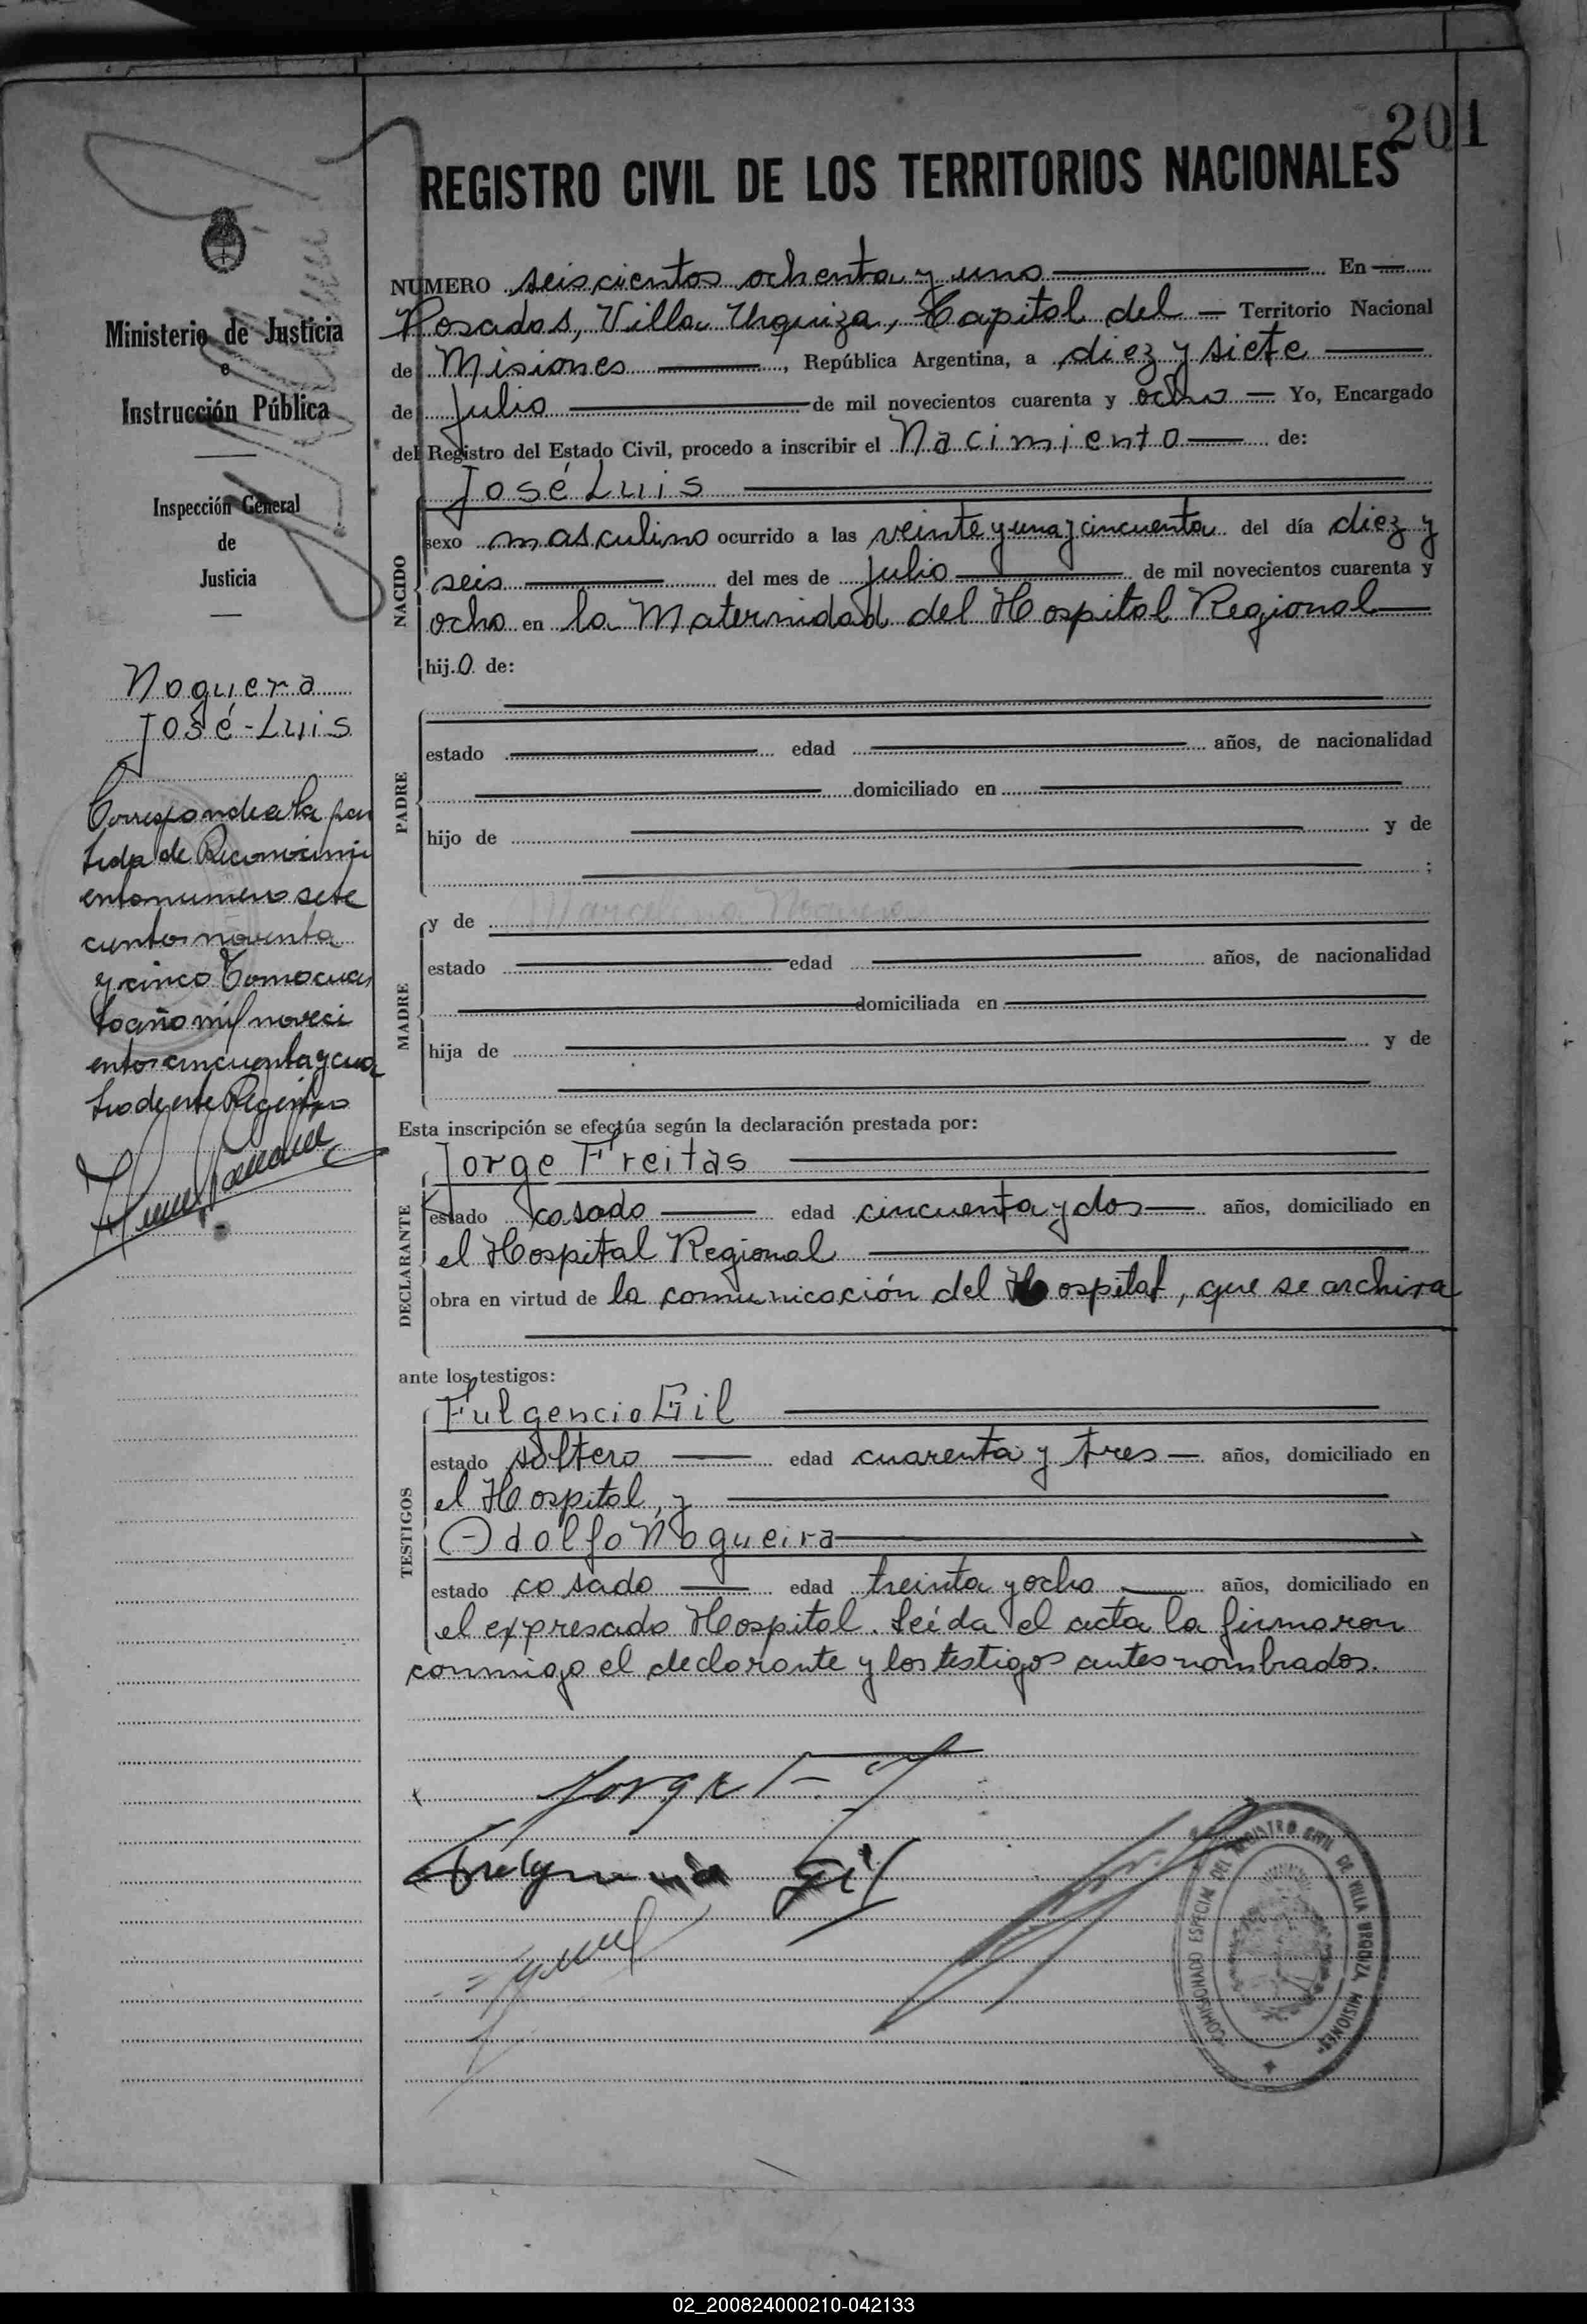 201
REGISTRO CIVIL DE LOS TERRITORIOS NACIONALES
Ministerio de Justicia
e
Instrucción Pública
Inspección General
de
Justicia
Noguera
José-Luis
Corresponde a la par
tida de Reconocimi
ento numero sete
cientos noventa
y cinco Tomo cuar
to año mil noveci
entos cincuenta y cua
tro de este Registro
NUMERO seiscientos ochenta y uno En
Posadas, Villa Urquiza, Capital del Territorio Nacional
de Misiones, República Argentina, a diez y siete
de Julio de mil novecientos cuarenta y ocho Yo, Encargado
del Registro del Estado Civil, procedo a inscribir el Nacimiento de:
José Luis
NACIDO
sexo masculino ocurrido a las veinte y una y cincuenta del día diez y
seis del mes de julio de mil novecientos cuarenta y
ocho en la Maternidad del Hospital Regional
hijo de:
PADRE
estado edad años, de nacionalidad
domiciliado en
hijo de y de
;
MADRE
y de Noguera
estado edad años, de nacionalidad
domiciliada en
hija de y de
Esta inscripción se efectúa según la declaración prestada por:
DECLARANTE
Jorge Freitas
estado casado edad cincuenta y dos años, domiciliado en
el Hospital Regional
obra en virtud de la comunicación del Hospital, que se archiva
ante los testigos:
TESTIGOS
Fulgencio Gil
estado soltero edad cuarenta y tres años, domiciliado en
el Hospital, y
Adolfo Nogueira
estado casado edad treinta y ocho años, domiciliado en
el expresado Hospital. Leída el acta la firmaron
conmigo el declarante y los testigos antes nombrados.
Jorge F
Fulgencio Gil
COMISIONADO ESPECIAL DEL REGISTRO CIVIL DE VILLA URQUIZA, MISIONES
02_200824000210-042133